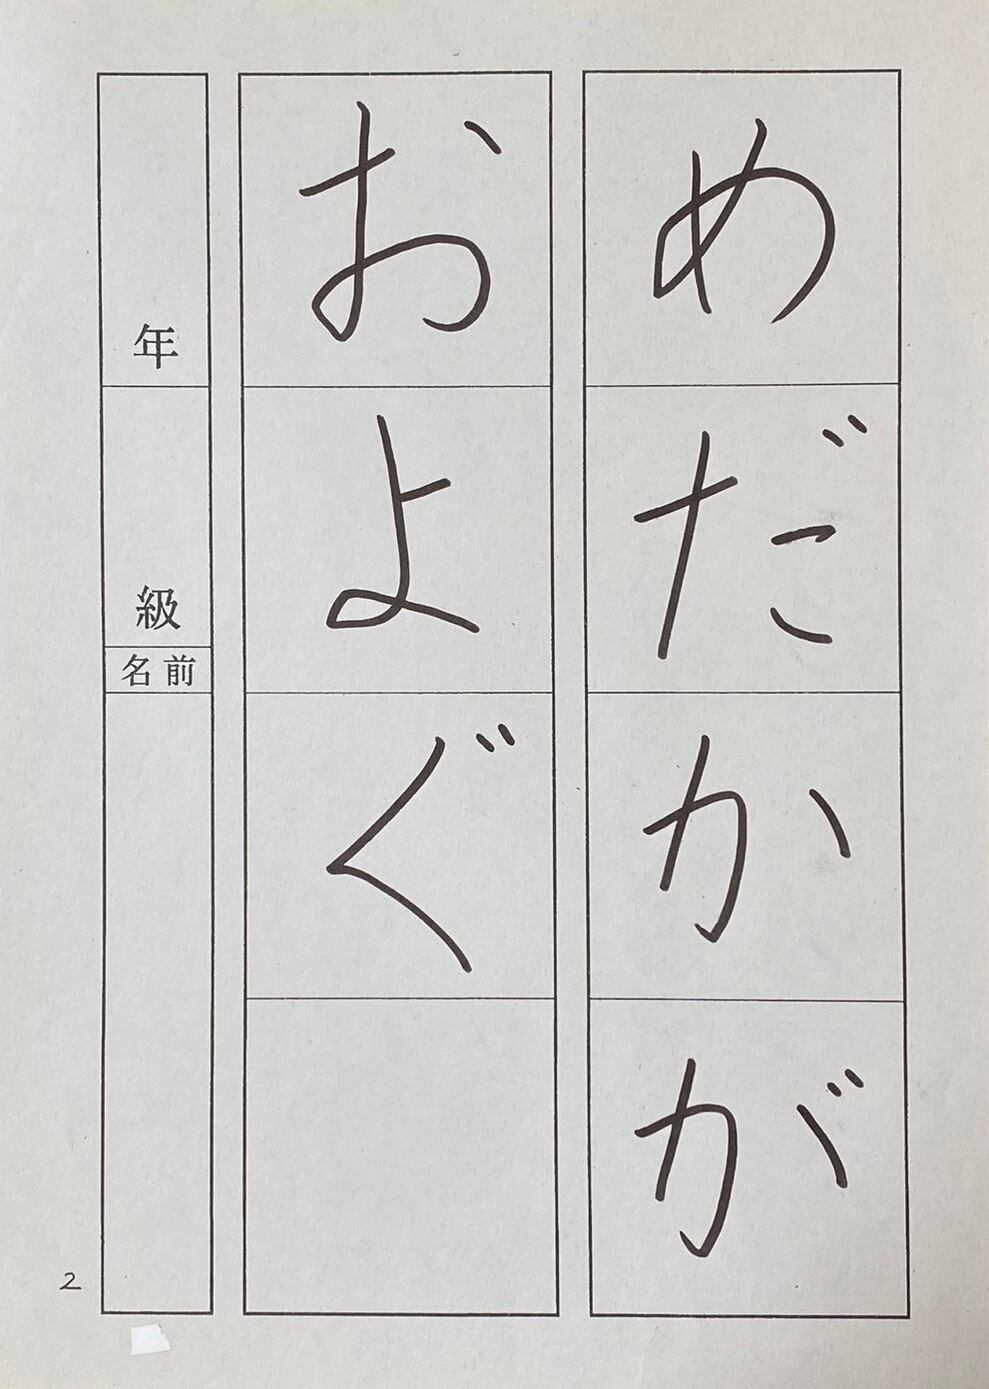 めだかが
およぐ
年
級
名前
2